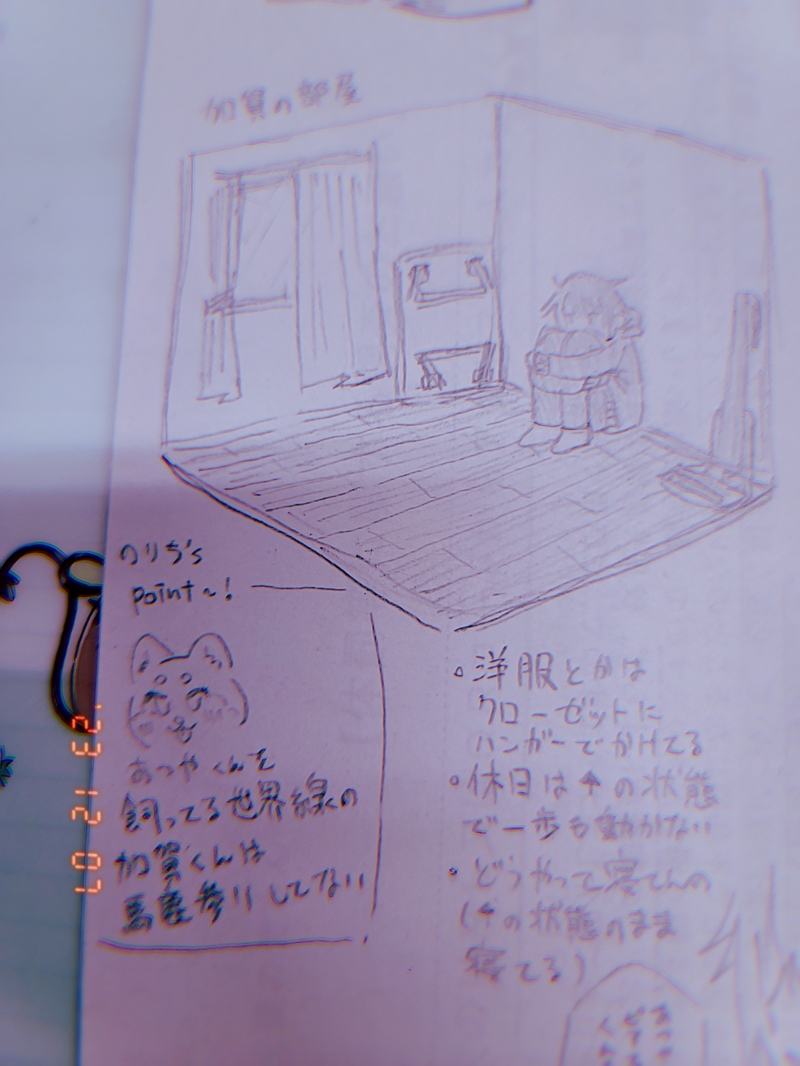 加賀の部屋
のりち's
point~!
あつやくんを
飼ってる世界線の
加賀くんは
馬鹿参りしてない
。洋服とかは
クローゼットに
ハンガーでかけてる
。休日は↑の状態
で一歩も動かない
。どうやって寝てんの
(↑の状態のまま
寝てる)
'23 12 07